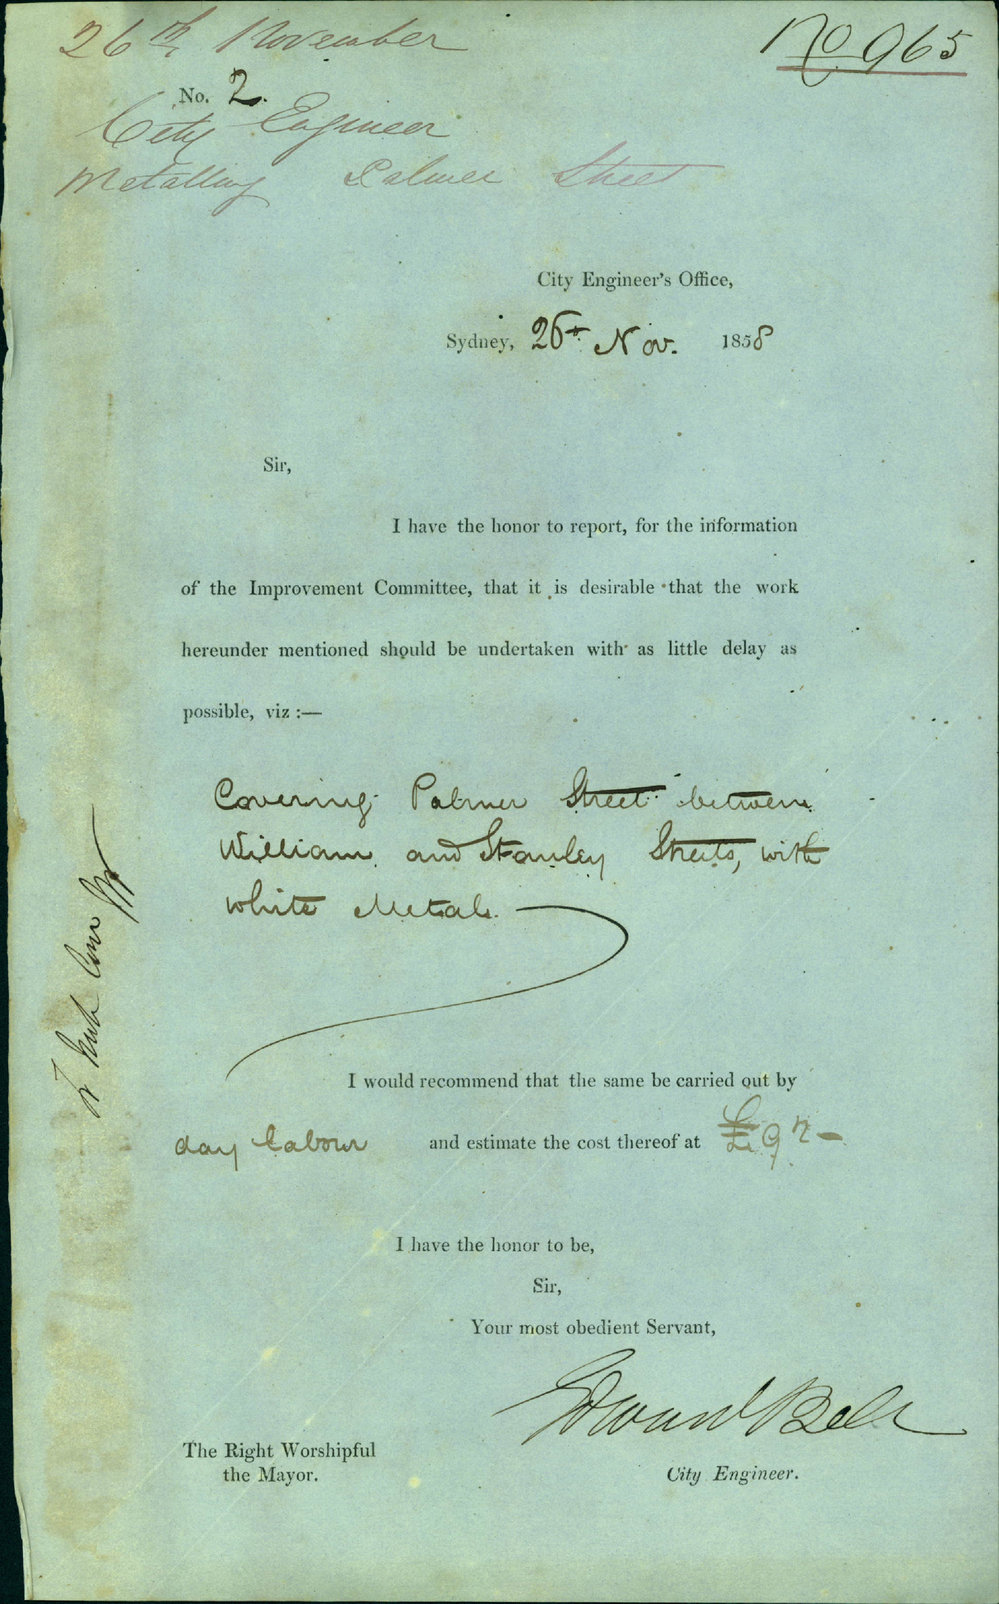 26th November
No 965
No. 2.
City Engineer
Metalling Palmer Street
City Engineer's Office,
Sydney, 26th Nov. 1858
Sir,
I have the honor to report, for the information
of the Improvement Committee, that it is desirable that the work
hereunder mentioned should be undertaken with as little delay as
possible, viz :—
Covering Palmer Street between
William and Stanley Streets, with
white Metal.
I would recommend that the same be carried out by
day labour and estimate the cost thereof at £97-
I have the honor to be,
Sir,
Your most obedient Servant,
Edward Bell
The Right Worshipful
the Mayor.
City Engineer.